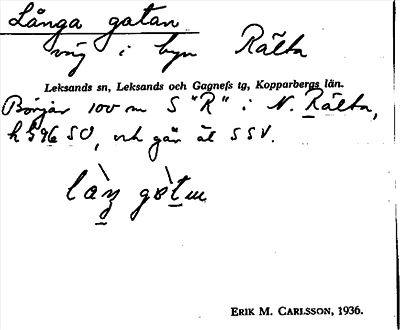 Långa gatan
väg i byn Rälta
Leksands sn, Leksands och Gagnefs tg, Kopparbergs län.
Börjar 100 m S "R" i N. Rälta,
SO, och går åt SSV.
ERIK M. CARLSSON, 1936.